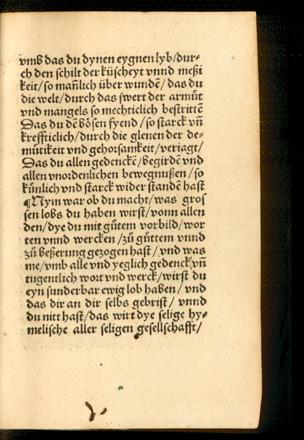 vmb das du dynen eygnen lyb/dur-
ch den schilt der küscheyt vnnd meßi
keit/so mañlich über wundē/das du
die welt/durch das swert der armůt
vnd mangels so mechticlich bestrittē
Das du dē bösen fyend/so starck vñ
krefficlich/durch die glenen der de-
můtikeit vnd gehorsamkeit/veriagt/
Das du allen gedenckē/begirdē vnd
allen vnordenlichen bewegnußen/so
künlich vnd starck wider standē hast
¶Nym war ob du macht/was gros
sen lobs du haben wirst/vonn allen
den/dye du mit gůtem vorbild/wor
ten vnnd wercken/zů gůttem vnnd
zů beßerung gezogen hast/vnd was
me/vmb alle vnd yeglich gedenck/vñ
tugentlich wort vnd werck/wirst du
eyn sunderbar ewig lob haben/vnd
das dir an dir selbs gebrist/vnnd
du nitt hast/das wirt dye selige hy-
melische aller seligen gesellschafft/